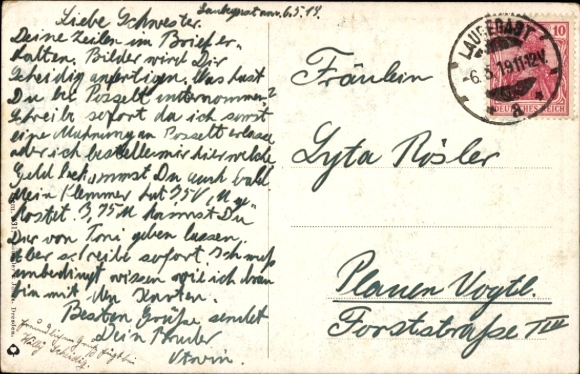 Laubegast am 6.5.19.
Liebe Schwester.
Deine Zeilen im Brief er-
halten. Bilder wird Dir
Scheidig anfertigen. Was hast
Du bei Posselt unternommen?
Schreibe sofort da ich sonst
eine Mahnung an Posselt erlasse
oder ich bestelle mir hier welche
Geld bekommst Du auch bald
Mein Klemmer hat
kostet 3,75 M kannst Du
Dir von Toni geben lassen.
Aber schreibe sofort. Ich muß
unbedingt wissen wie ich dran
bin mit den Karten.
Besten Grüße sendet
Dein Bruder
Erwin.
Fräulein
Lyta Rösler
Plauen Vogtl.
Forststraße
LAUBEGAST
6.5.19.11-12V.
* a
10
DEUTSCHES REICH
Dresden.